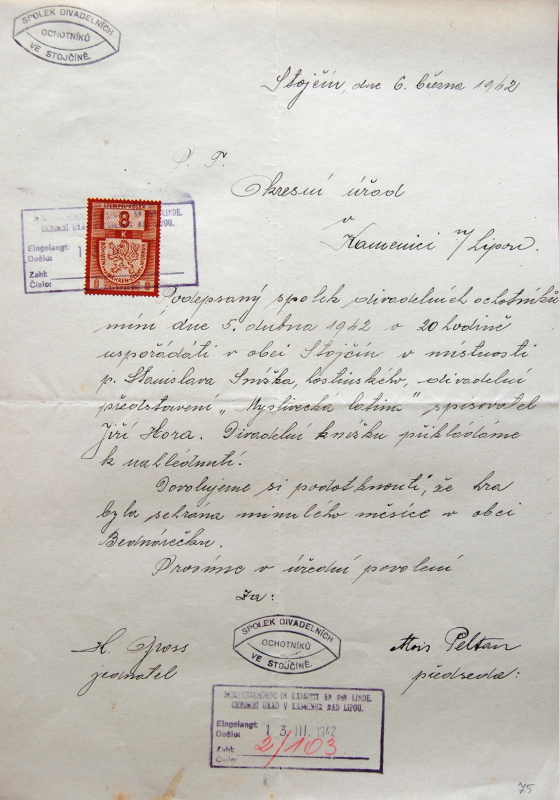 SPOLEK DIVADELNÍCH
OCHOTNÍKŮ
VE STOJČÍNĚ.
Stojčín, dne 6. března 1942
P. T.
Okresní úřad
v
Kamenici n/Lipou.
LINDE.
LIPOU.
Eingelangt:
Došlo: 1
Zahl:
Číslo:
8
K
8 8
Podepsaný spolek divadelních ochotníků
míní dne 5. dubna 1942 o 20 hodině
uspořádati v obci Stojčín v místnosti
p. Stanislava Smíška, hostinského, divadelní
představení „Myslivecká latina" spisovatel
Jiří Hora. Divadelní knížku přikládáme
k nahlédnutí.
Dovolujeme si podotknouti, že hra
byla sehrána minulého měsíce v obci
Bednárečku.
Prosíme o úřední povolení
Za:
SPOLEK DIVADELNÍCH
OCHOTNÍKŮ
VE STOJČÍNĚ.
H. Gross
jednatel
Alois Peltan
předseda:
BEZIRKSBEHÖRDE IN KAMENITZ AN DER LINDE.
OKRESNÍ ÚŘAD V KAMENICI NAD LIPOU.
Eingelangt:
Došlo: 13. III. 1942
Zahl:
Číslo: 2/103
75